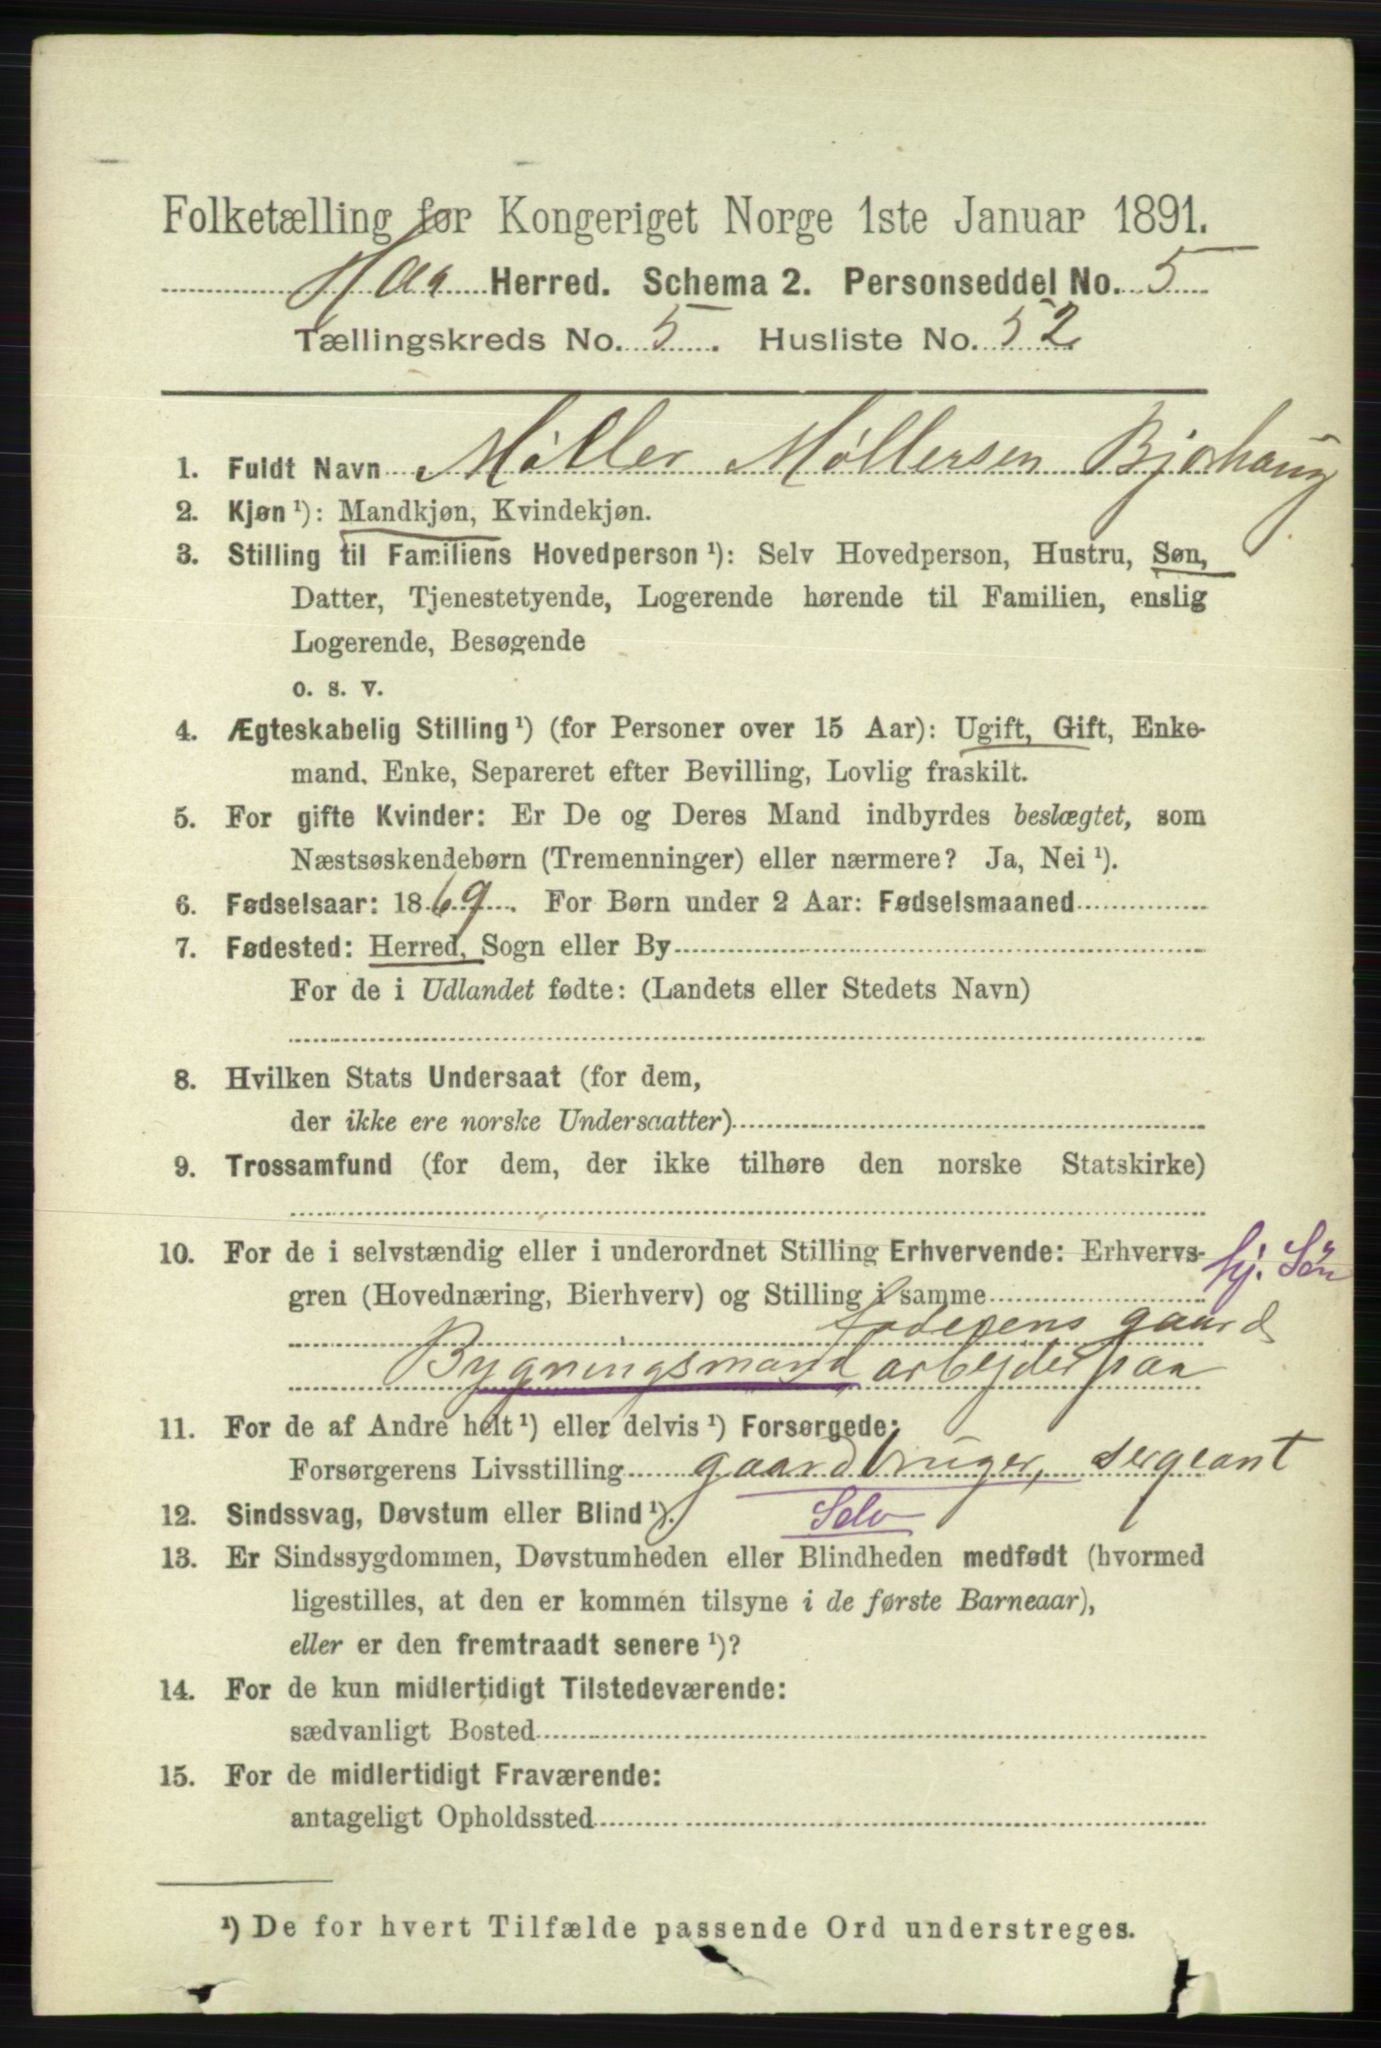 Folketælling for Kongeriget Norge 1ste Januar 1891.
Haa Herred. Schema 2. Personseddel No. 5
Tællingskreds No. 5. Husliste No. 52
1. Fuldt Navn Møller Møllersen Bjorhaug
2. Kjøn ¹): Mandkjøn, Kvindekjøn.
3. Stilling til Familiens Hovedperson ¹): Selv Hovedperson, Hustru, Søn,
Datter, Tjenestetyende, Logerende hørende til Familien, enslig
Logerende, Besøgende
o. s. v.
4. Ægteskabelig Stilling ¹) (for Personer over 15 Aar): Ugift, Gift, Enke-
mand, Enke, Separeret efter Bevilling, Lovlig fraskilt.
5. For gifte Kvinder: Er De og Deres Mand indbyrdes beslægtet, som
Næstsøskendebørn (Tremenninger) eller nærmere? Ja, Nei ¹).
6. Fødselsaar: 1869. For Børn under 2 Aar: Fødselsmaaned
7. Fødested: Herred, Sogn eller By
For de i Udlandet fødte: (Landets eller Stedets Navn)
8. Hvilken Stats Undersaat (for dem,
der ikke ere norske Undersaatter)
9. Trossamfund (for dem, der ikke tilhøre den norske Statskirke)
10. For de i selvstændig eller i underordnet Stilling Erhvervende: Erhvervs-
gj. Søn
gren (Hovednæring, Bierhverv) og Stilling i samme
faderens gaard
Bygningsmand arbejder paa
11. For de af Andre helt ¹) eller delvis ¹) Forsørgede:
Forsørgerens Livsstilling gaardbruger, sergeant
12. Sindssvag, Døvstum eller Blind ¹). Selv
13. Er Sindssygdommen, Døvstumheden eller Blindheden medfødt (hvormed
ligestilles, at den er kommen tilsyne i de første Barneaar),
eller er den fremtraadt senere ¹)?
14. For de kun midlertidigt Tilstedeværende:
sædvanligt Bosted
15. For de midlertidigt Fraværende:
antageligt Opholdssted
¹) De for hvert Tilfælde passende Ord understreges.